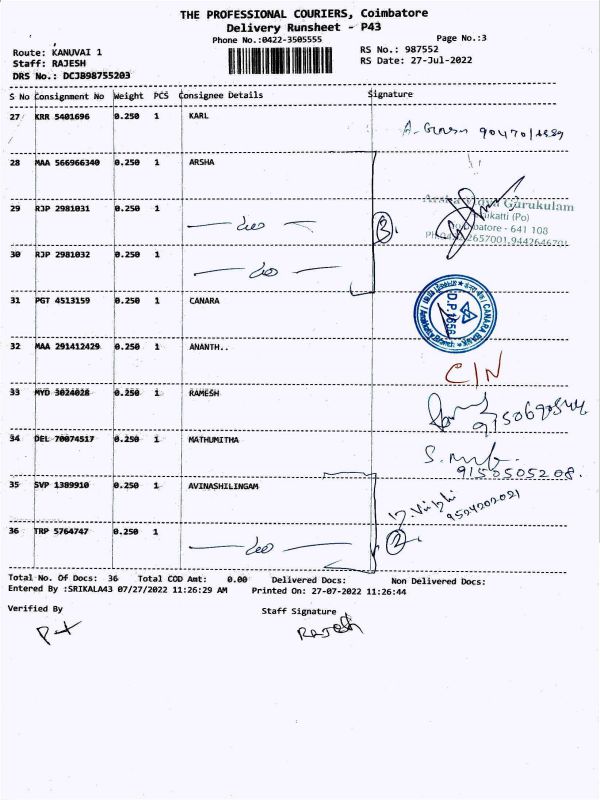 THE PROFESSIONAL COURIERS, Coimbatore
Delivery Runsheet - P43
Phone No.:0422-3505555
Page No.:3
Route: KANUVAI 1
RS No.: 987552
Staff: RAJESH
RS Date: 27-Jul-2022
DRS No.: DCJB98755203
S No Consignment No Weight PCS Consignee Details Signature
27 KRR 5401696 0.250 1 KARL
28 MAA 566966340 0.250 1 ARSHA
Gurukulam
(Po)
641 108
29 RJP 2981031 0.250 1
3.
30 RJP 2981032 0.250 1
31 PGT 4513159 0.250 1 CANARA
32 MAA 291412429 0.250 1 ANANTH..
C/N
33 MYD 3024028 0.250 1 RAMESH
34 DEL 70074517 0.250 1 MATHUMITHA
9150505208.
35 SVP 1389910 0.250 1 AVINASHILINGAM
36 TRP 5764747 0.250 1
2.
Total No. Of Docs: 36 Total COD Amt: 0.00 Delivered Docs: Non Delivered Docs:
Entered By :SRIKALA43 07/27/2022 11:26:29 AM Printed On: 27-07-2022 11:26:44
Verified By
Staff Signature
RAJESH